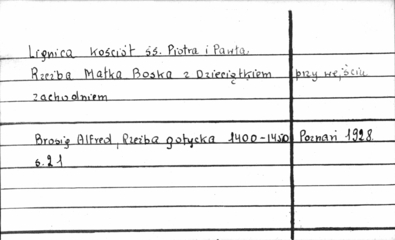 Lignica kościół śś. Piotra i Pawła
Rzeźba Matka Boska z Dzieciątkiem przy wejściu
zachodniem
Brosig Alfred, Rzeźba gotycka 1400-1450 Poznań 1928.
s.21